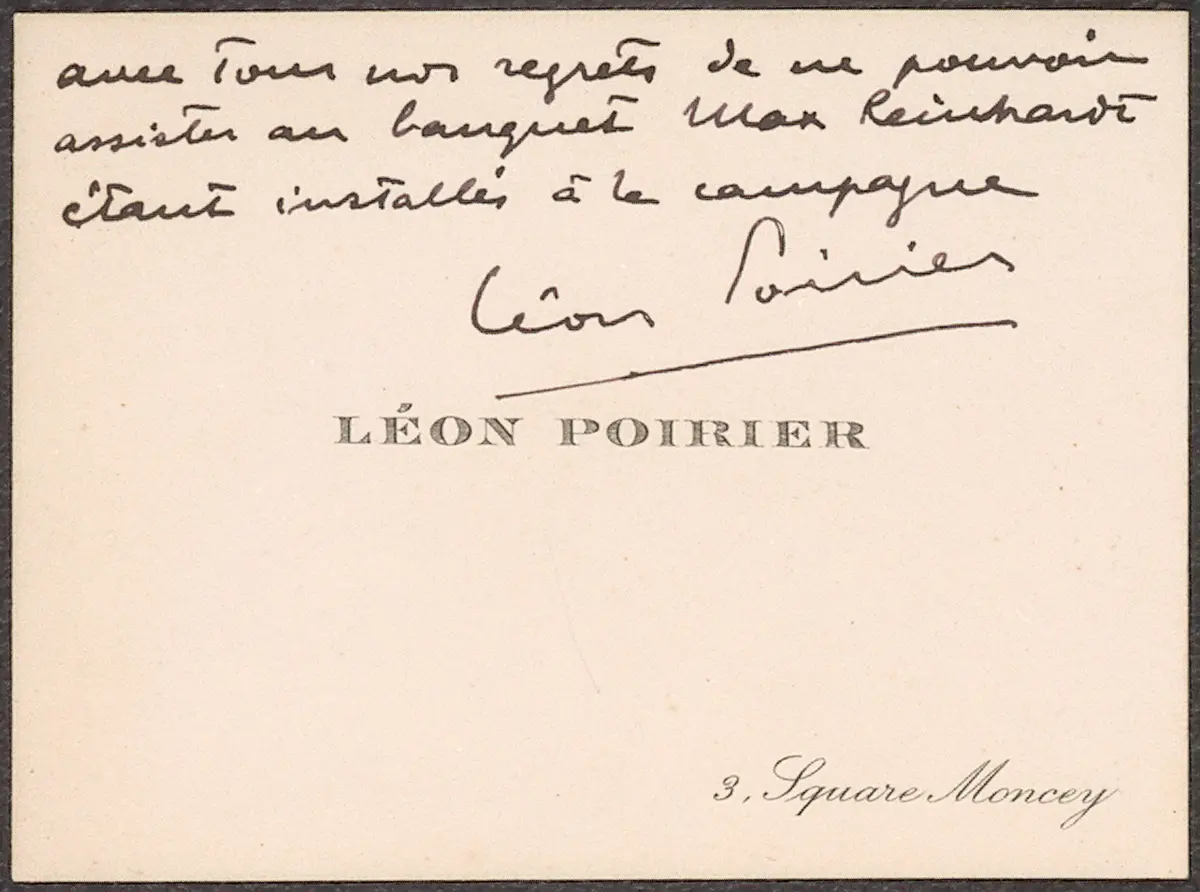 avec tous nos regrets de ne pouvoir
assister au banquet Max Reinhardt
étant installés à la campagne
Léon Poirier
LÉON POIRIER
3, Square Moncey